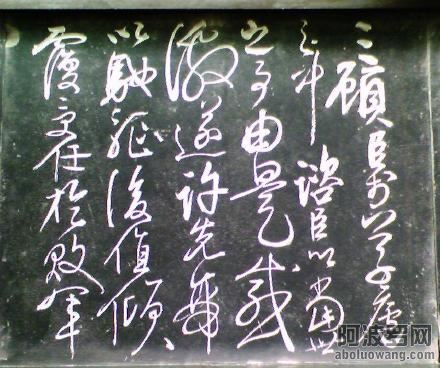 三顧臣於草廬
之中諮臣以當世
之事由是感
激遂許先帝
以驅馳後值傾
覆受任於敗軍
阿波罗网
aboluowang.com